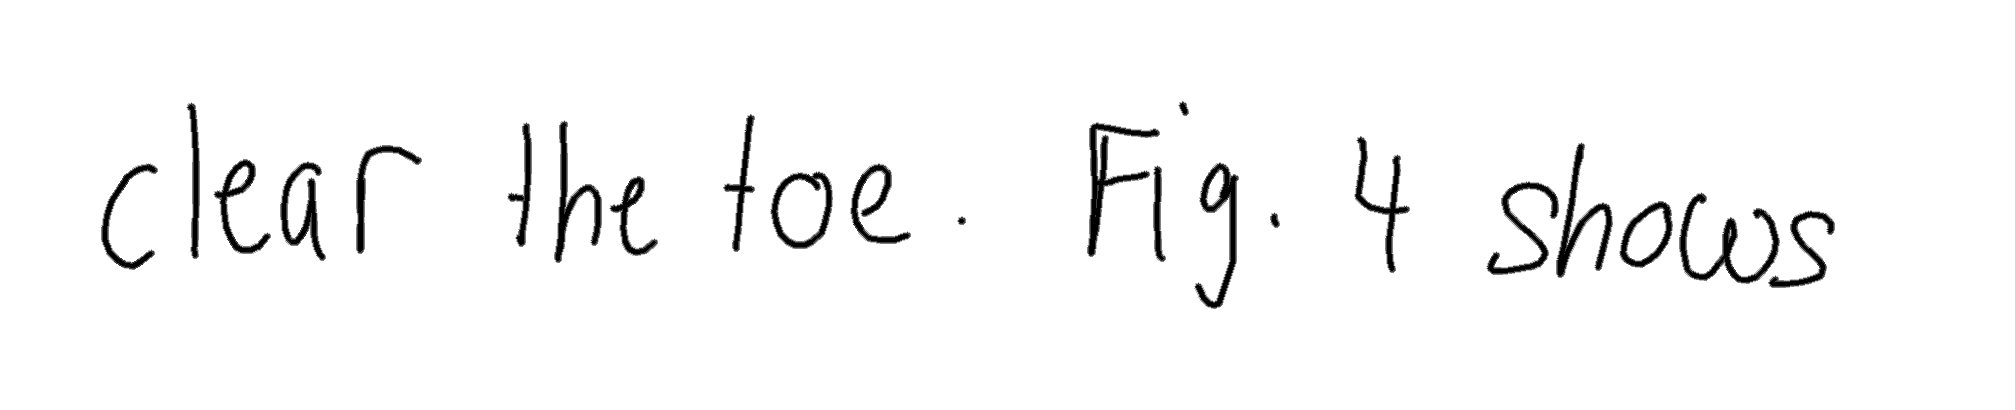 clear the toe. Fig. 4 shows